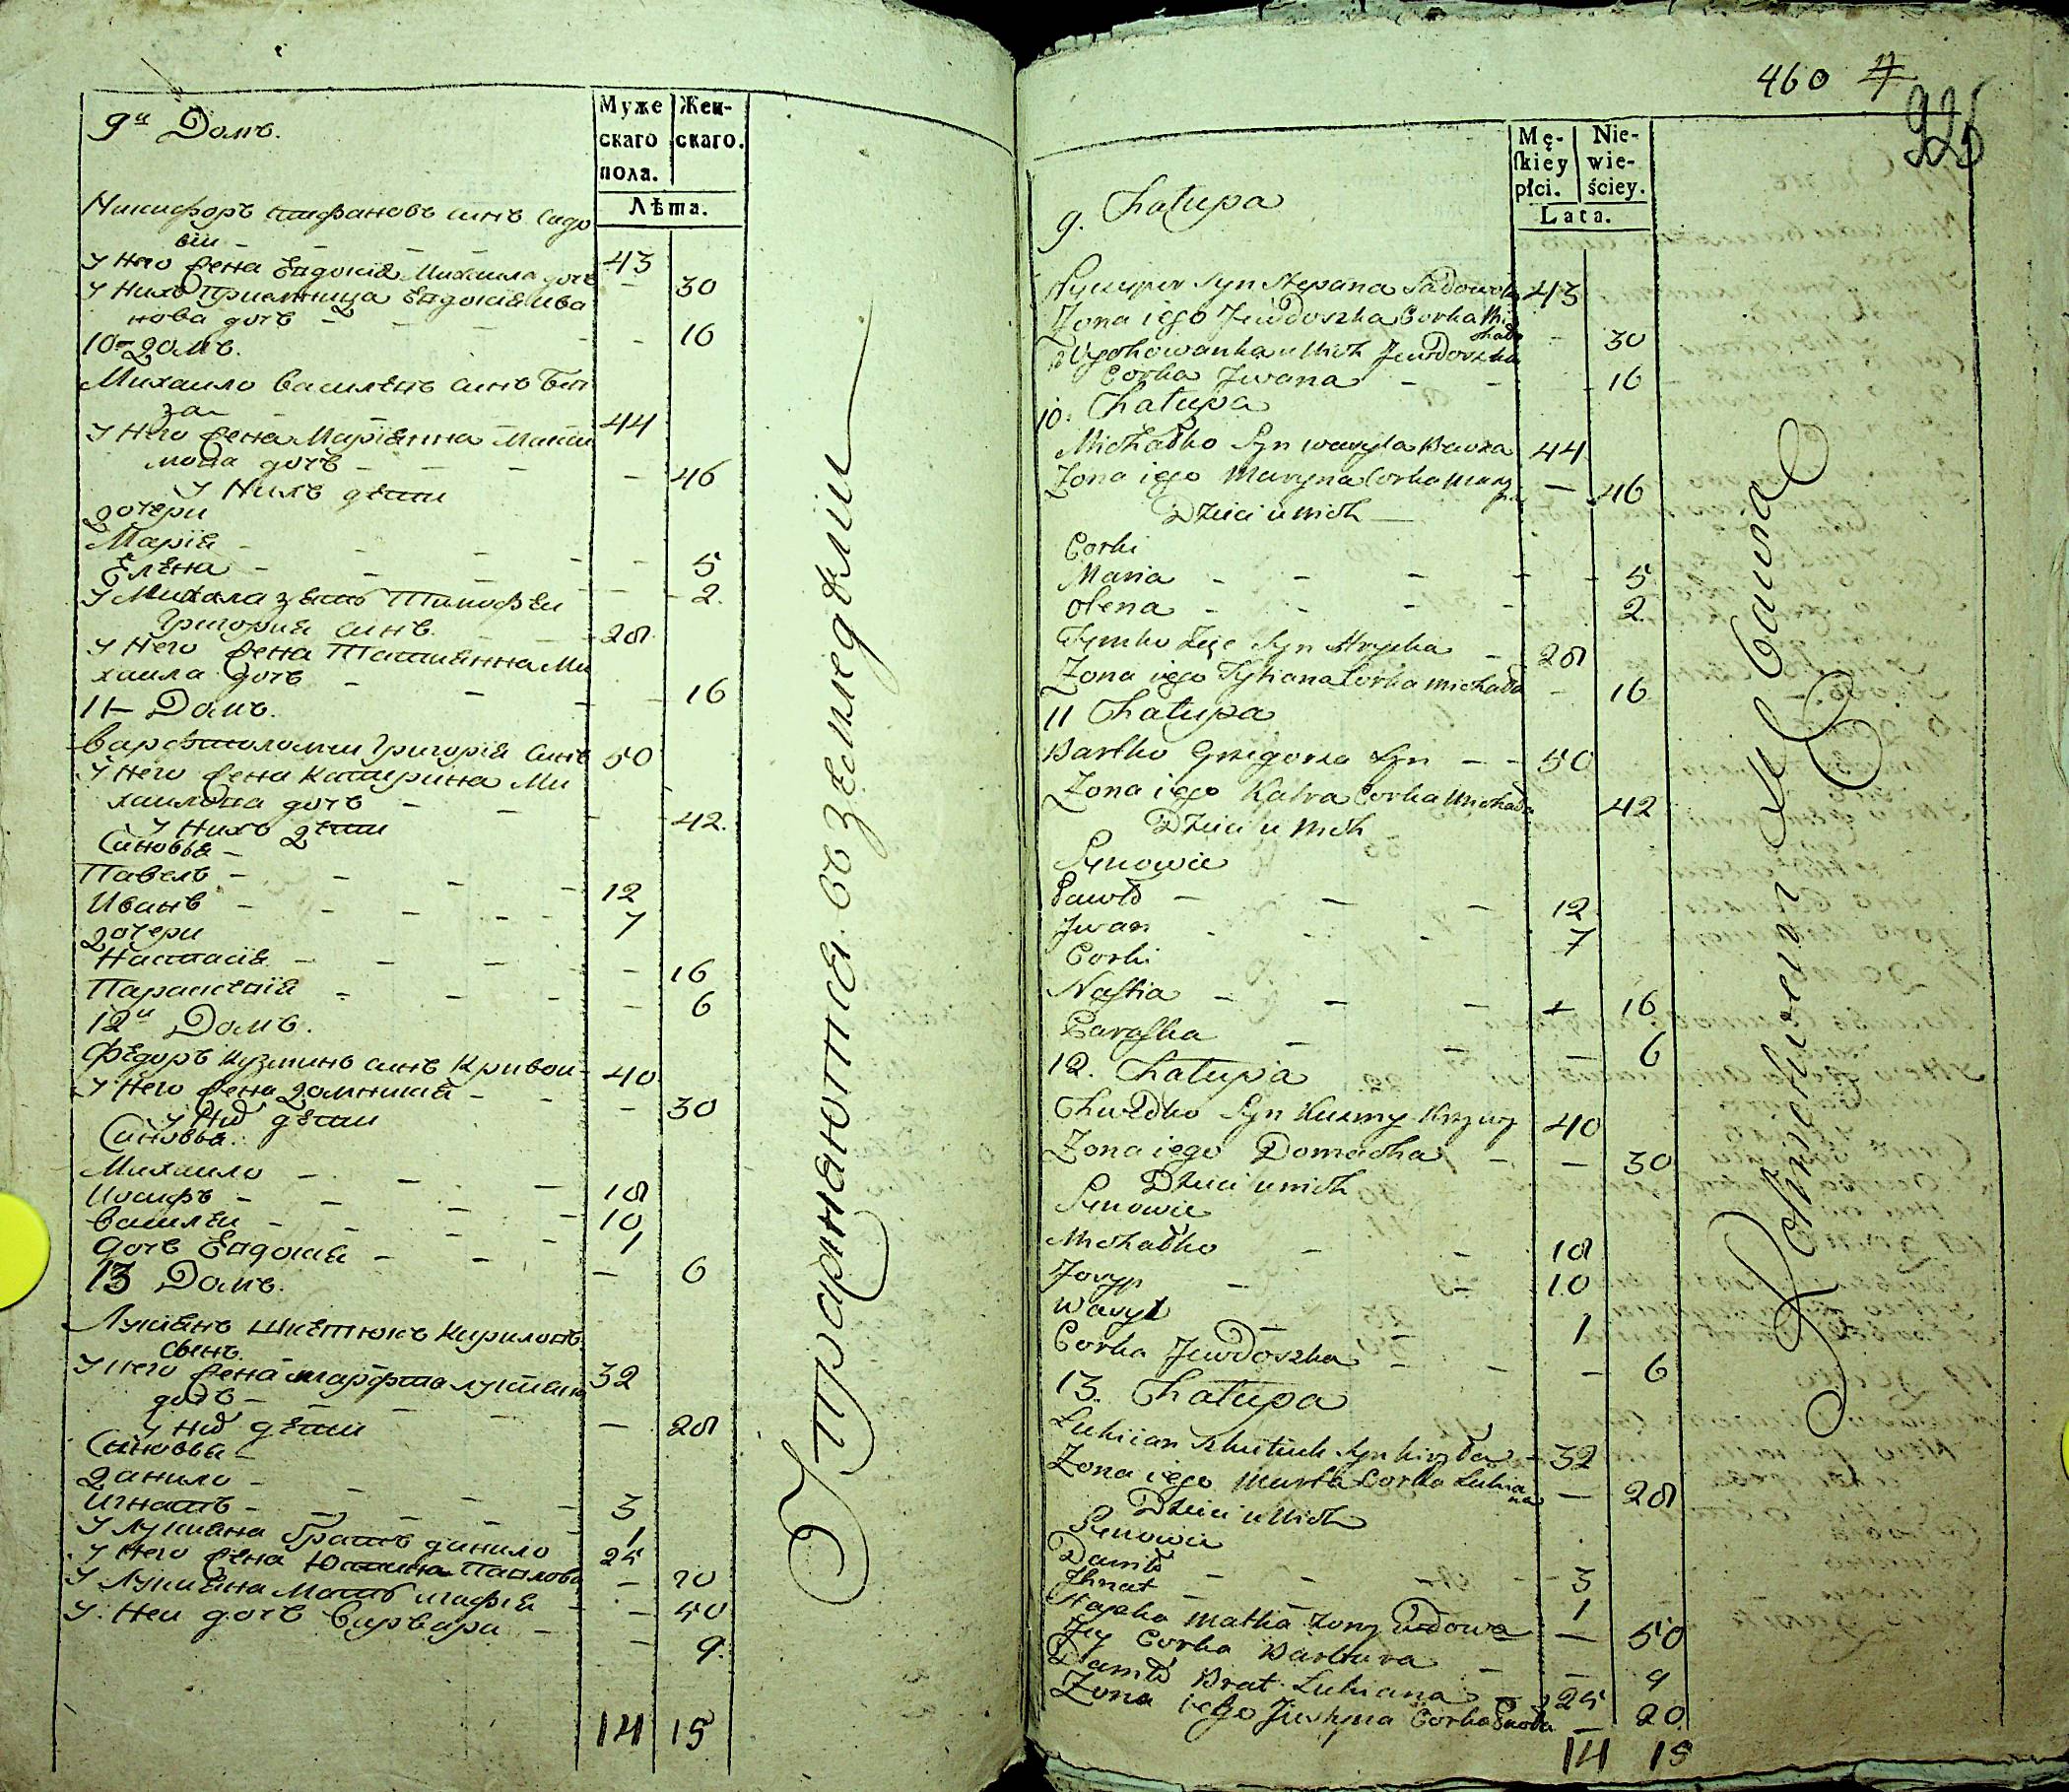 9й Домъ.
Муже
скаго
пола.
Жен-
скаго.
Лѣта.
Никифоръ Стефановъ синъ Садо
вій - 43
У Него жена Евдокія Михаила дочь - 30
У Нихъ Приемница Евдокія Ива
нова дочь - - 16
10й домъ.
Михаило Василевъ синъ
за - 44
У Него жена Маріянна Макси
мова дочь - - 46
У Нихъ дѣти
дочери
Марія - - 5
Елена - - 2.
У Михала зять Тимофѣй
Григорія синъ 28
У Него жена Татіянна Ми
хаила дочь - - 16
11й Домъ.
Варфоломей Григорія Синъ 50
У Него жена Катерина Ми
хаилова дочь - - 42.
У Нихъ дѣти
Синовья -
Павелъ - 12
Иванъ - 7
дочери
Настасія - - 16
Параскевія - - 6
12й Домъ.
Федоръ Кузминъ синъ Кривой 40
У Него жена Домникія - - 30
У Них дѣти
Синовья.
Михаило - 18
Иосифъ - 10
Василѣй - 1
дочь Евдокія - - 6
13 Домъ.
Лукіянъ Шкетюкъ Кириловъ
Сынъ. 32
У Него жена Марфа Лукіяна
дочь - - 28
У Них дѣти
Синовья -
Данило - 3
Игнатъ - 1
У Лукіяна Братъ данило 25
У Него жена Юстина Павлова - 20
У Лукіяна Мать - 50
У Ней дочь Варвара - - 9.
14 15
Упражняются въ земледѣліи
460 4
926
Mę-
ſkiey
płci.
Nie-
wie-
ściey.
Lata.
9. Chałupa
Nyczypor Syn Stepana Sadowski 43
Zona iego Jewdoszka Corka Mi
chała - 30
Wychowanka u Nich Jewdoszka
Corka Jwana - - 16
10. Chałupa
Michałko Syn Wasyla 44
Zona iego Maryna Corka - 46
Dzieci u nich
Corki
Maria - - 5
Olena - - 2
Tymko Zięc Syn Hryćka - 28
Zona iego Tytiana Corka Michała - 16
11 Chałupa
Bartko Grzegorza Syn - - 50
Zona iego Katra Corka Michała 42
Dzieci u Nich
Synowie
Pawło - 12
Jwan - 7
Corki
Nastia - - 16
Paraſka - - 6
12. Chałupa
Chwedko Syn Kuzmy Krzywy 40
Zona iego Domacha - - 30
Dzieci u nich
Synowie
Michałko - 18
Josyp - 10
Wasyl - 1
Corka Jewdoszka - - 6
13. Chałupa
Lukiian Szkutiuk Syn Kiryła - 32
Zona iego Marta Corka Lukia
na - 28
Dzieci u Nich
Synowie
Daniło - 3
Jhnat - 1
Matka Zony Wdowa - 50
Jey Corka Barbara - - 9
Daniło Brat Lukiana - 25
Zona iego Justyna Corka Pawła - 20
14 15